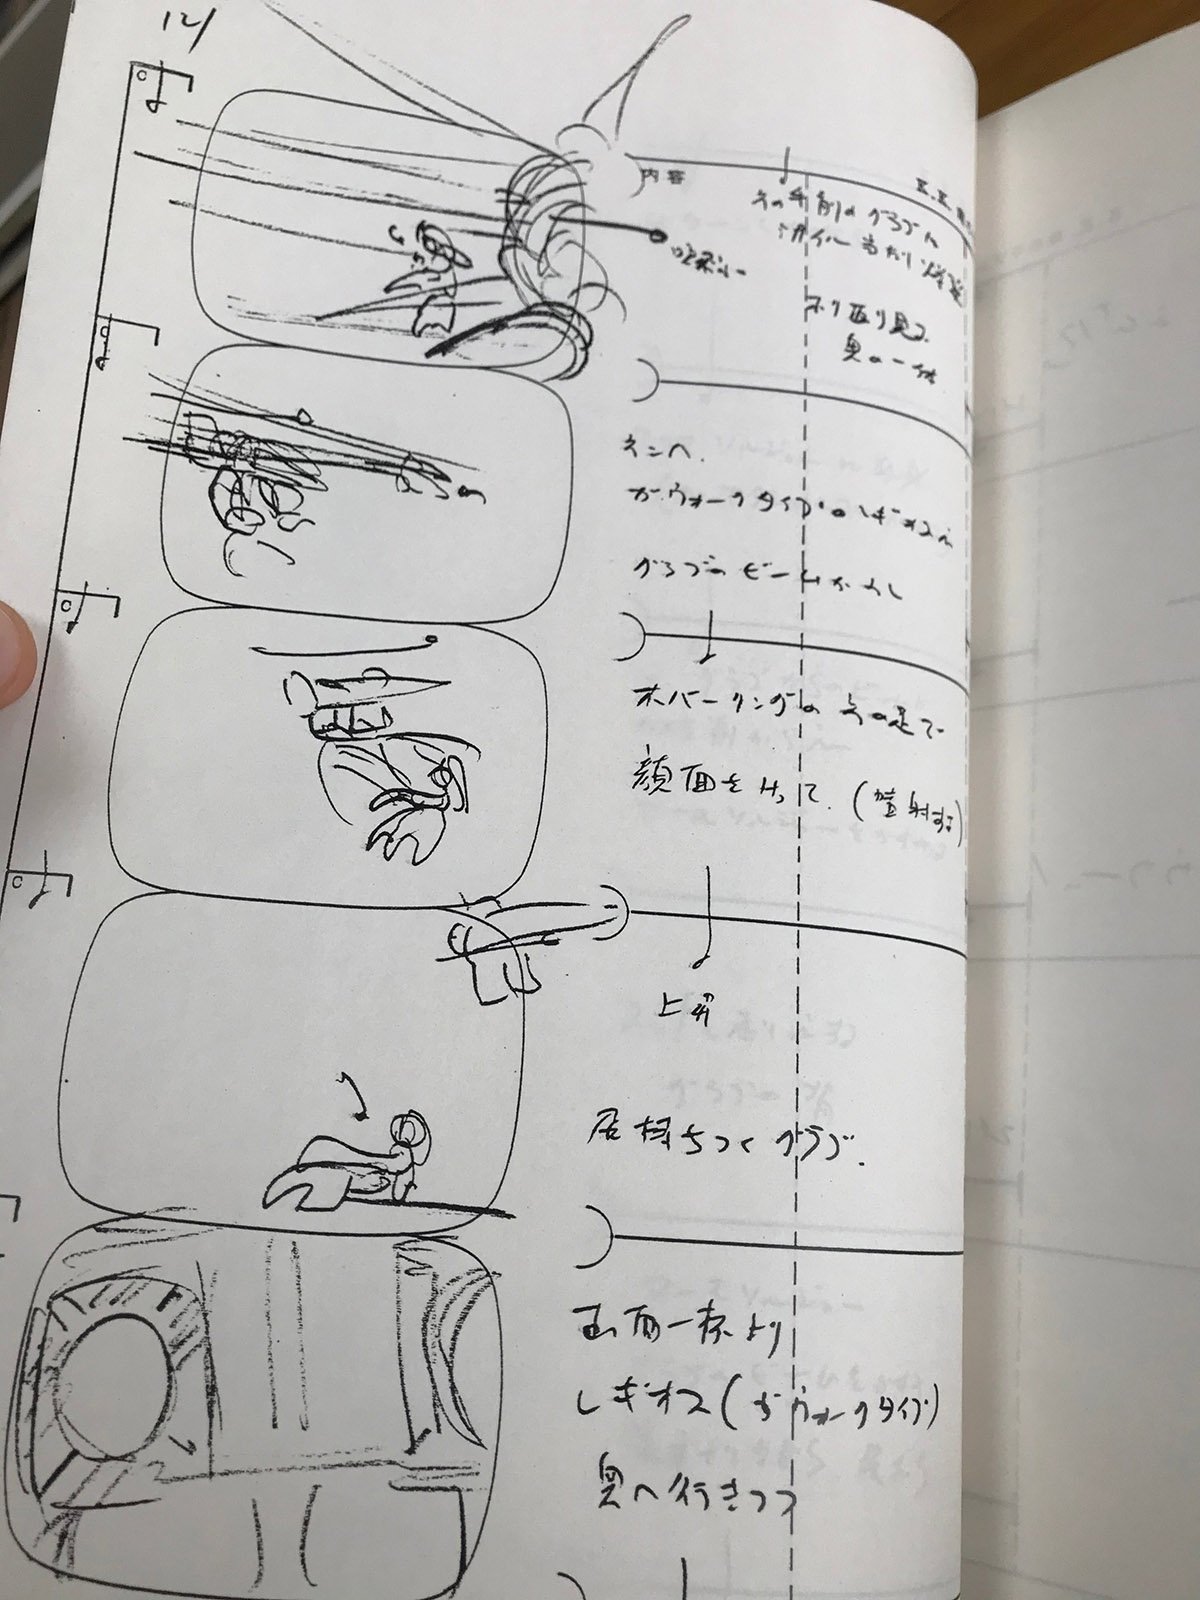 121
内容
その手前のグラブに
ミサイル当たり爆発
ふり返り見る
奥の一体
キンヘ.
ガウォークタイプのレギオスに
グラブのビームかわし
ホバーリングのその足で
顔面をけって.(噴射する)
上昇
尻持ちつくグラブ.
画面一杯より
レギオス(ガウォークタイプ)
奥へ行きつつ